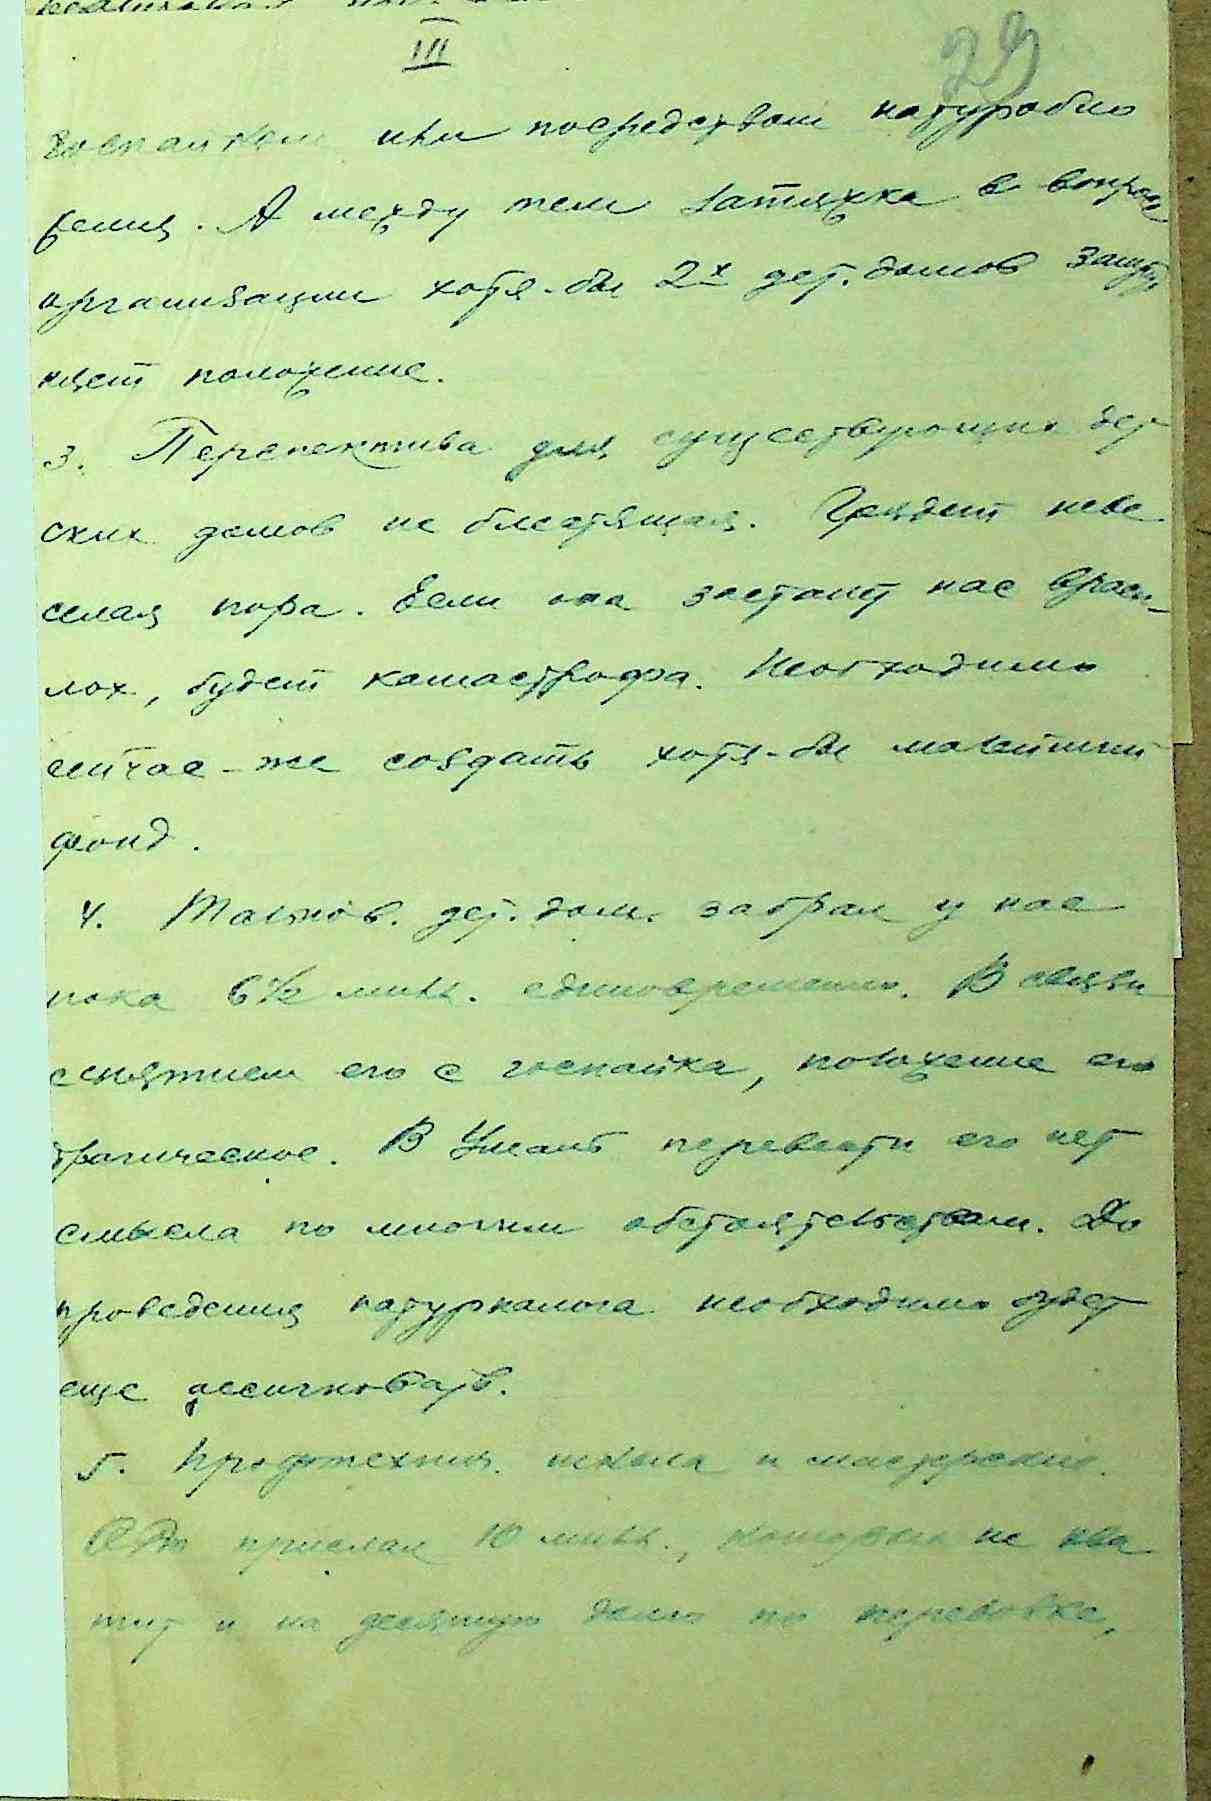 III
29
госпайком или посредством натуробло
жения. А между тем затяжка в вопросе
организации хотя-бы 2х дет. домов запуты
няет положение.
3. Перспектива для существующих дет
ских домов не блестящая. Грядет неве
селая пора. Если она застанет нас врасп-
лох, будет катастрофа. Необходимо
сейчас-же создать хотя-бы маленький
фонд.
4. Тальнов. дет. дом. забрал у нас
пока 6½ милл. единовременно. В связи
с снятием его с госпайка, положение его
трагическое. В Умань перевести его нет
смысла по многим обстоятельствам. До
проведения натурналога необходимо будет
еще ассигновать.
5. Профтехнич. школа и мастерские.
прислал 10 милл., которых не хва
тит и на десятую долю по перевозке,